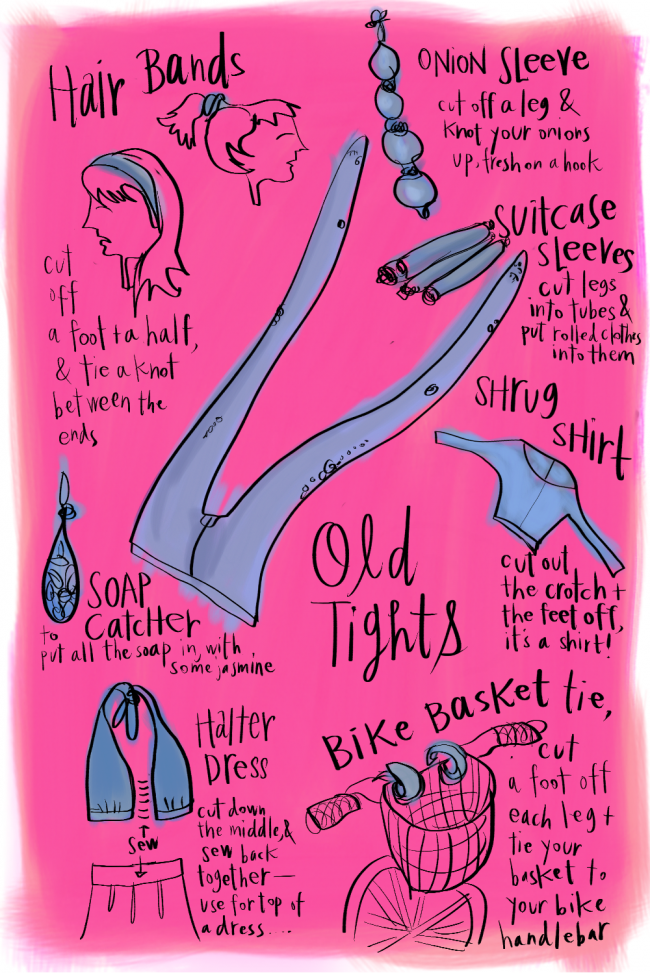 Hair Bands
cut
off
a foot + a half,
& tie a knot
between the
ends
ONION SLeeve
cut off a leg &
knot your onions
up, fresh on a hook
SUITCASE
SLEEVES
cut legs
into tubes &
put rolled clothes
into them
SHrug
SHirt
cut out
the crotch +
the feet off,
it's a shirt!
Old
Tights
SOAP
CatcHer
to
put all the soap in, with
some jasmine
Halter
Dress
cut down
the middle, &
sew back
together—
use for top of
a dress....
Sew
BiKe BasKet tie,
cut
a foot off
each leg +
tie your
basket to
your bike
handlebar